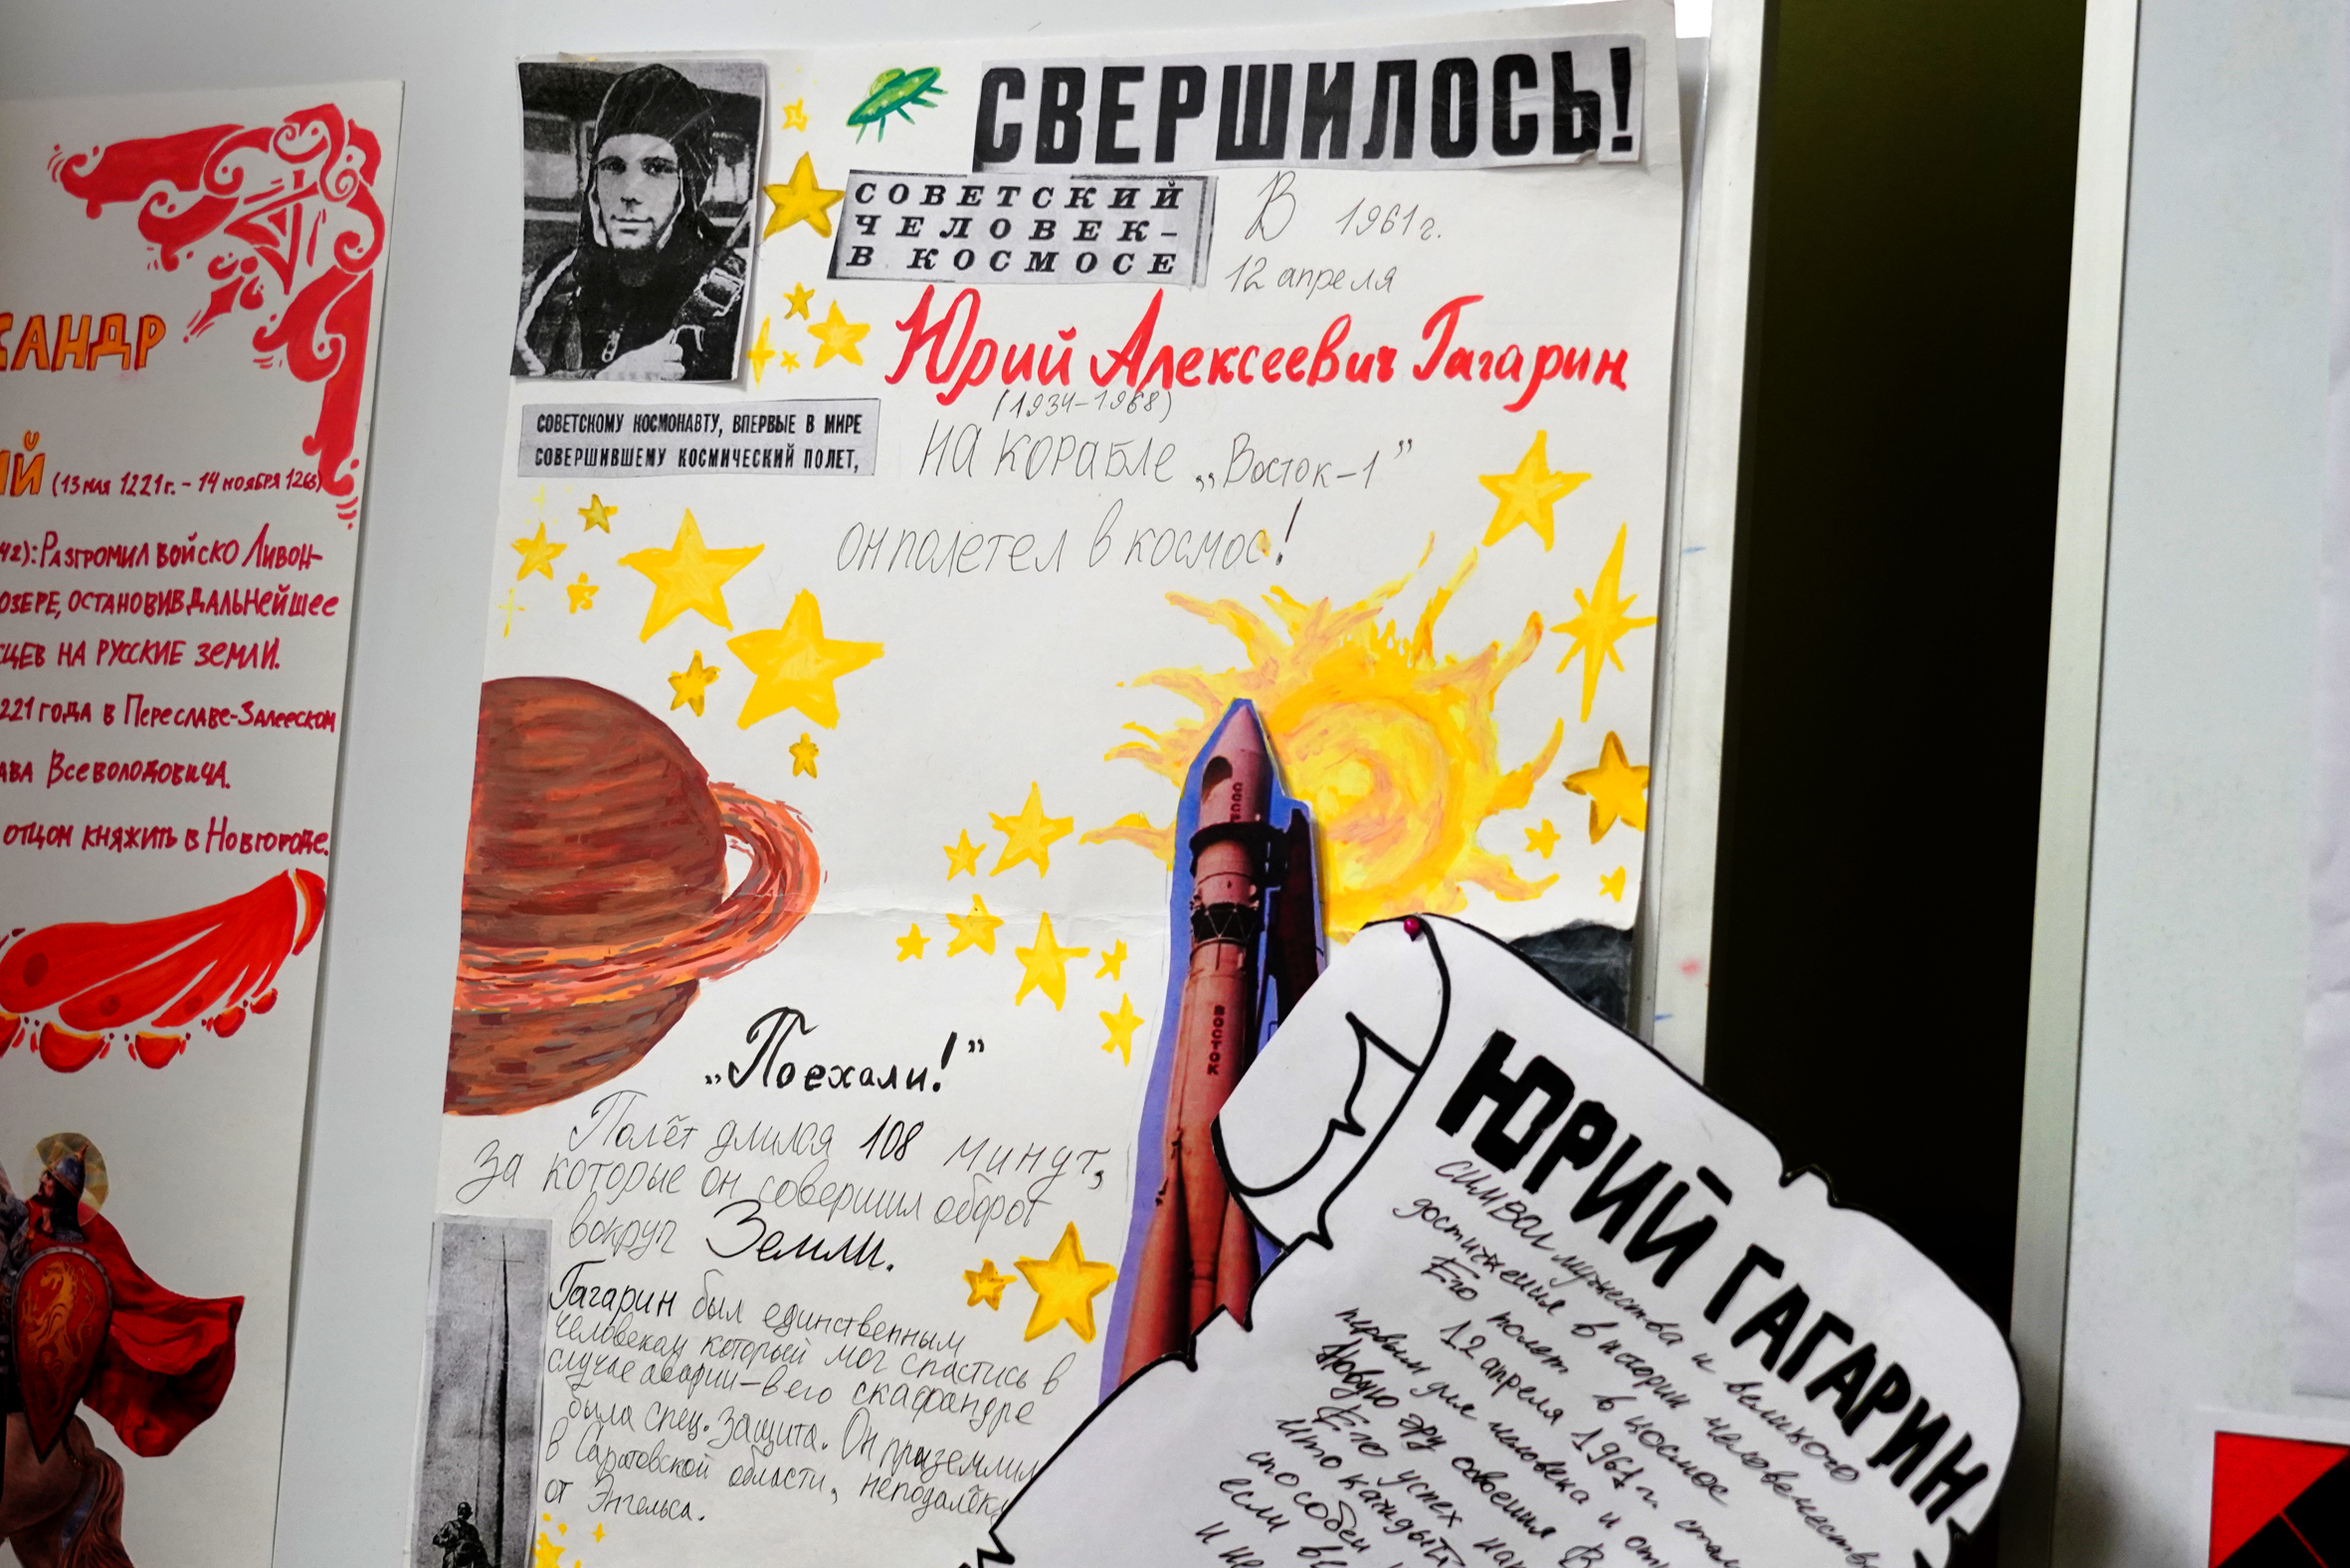 САНДР
ИЙ (13 мая 1221г. – 14 ноября 1263)
42): Разгромил войско Ливон-
озере, остановив дальнейшее
цев на русские земли.
221 года в Переславе-Залееском
ава Всеволодовича.
отцом княжить в Новгороде.
СВЕРШИЛОСЬ!
СОВЕТСКИЙ
ЧЕЛОВЕК–
В КОСМОСЕ
В 1961г.
12 апреля
Юрий Алексеевич Гагарин
(1934–1968)
СОВЕТСКОМУ КОСМОНАВТУ, ВПЕРВЫЕ В МИРЕ
СОВЕРШИВШЕМУ КОСМИЧЕСКИЙ ПОЛЕТ,
на корабле „Восток–1”
он полетел в космос!
СССР
ВОСТОК
„Поехали!”
Полёт длился 108 минут,
за которые он совершил оборот
вокруг Земли.
Гагарин был единственным
человеком который мог спастись в
случае аварии–в его скафандре
была спец. защита. Он приземлил
в Саратовской области, неподалёку
от Энгельса.
ЮРИЙ ГАГАРИН–
символ мужества и великого
достижения в истории человечеств
Его полет в космос
12 апреля 1961 г. стал
первым для человека и от
новую эру освоения
Его успех
что каждый
способен
если
и не